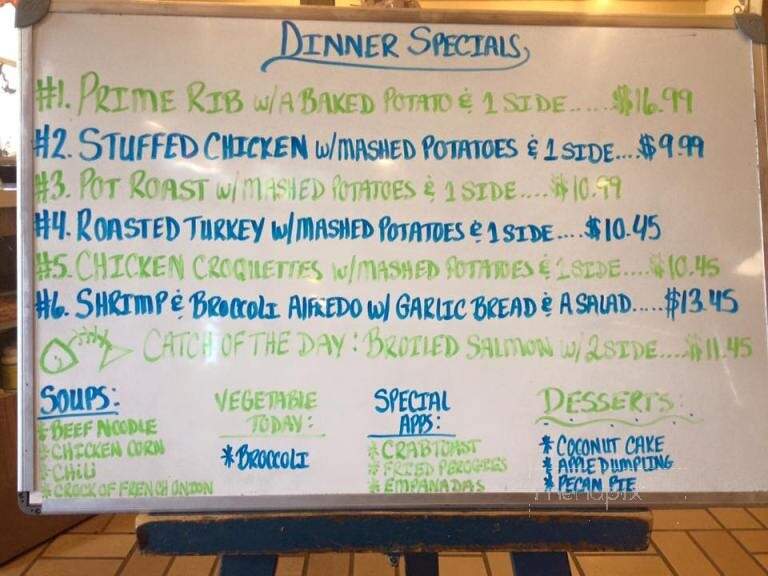 DINNER SPECIALS
#1. PRIME RIB W/A BAKED POTATO & 1 SIDE......$16.99
#2. STUFFED CHICKEN W/MASHED POTATOES & 1 SIDE....$9.99
#3. POT ROAST W/MASHED POTATOES & 1 SIDE....$10.99
#4. ROASTED TURKEY W/MASHED POTATOES & 1 SIDE....$10.45
#5. CHICKEN CROQUETTES W/MASHED POTATOES & 1 SIDE....$10.45
#6. SHRIMP & BROCCOLI AlFREDO W/ GARLIC BREAD & A SALAD.....$13.45
CATCH OF THE DAY: BROILED SALMON W/ 2 SIDE....$11.45
SOUPS:
*BEEF NOODLE
*CHICKEN CORN
*CHILI
*CROCK OF FRENCH ONION
VEGETABLE
TODAY:
*BROCCOLI
SPECIAL
APPS:
*CRABTOAST
*FRIED PEROGIES
*EMPANADAS
DESSERTS:
*COCONUT CAKE
*APPLE DUMPLING
*PECAN PIE
menupix